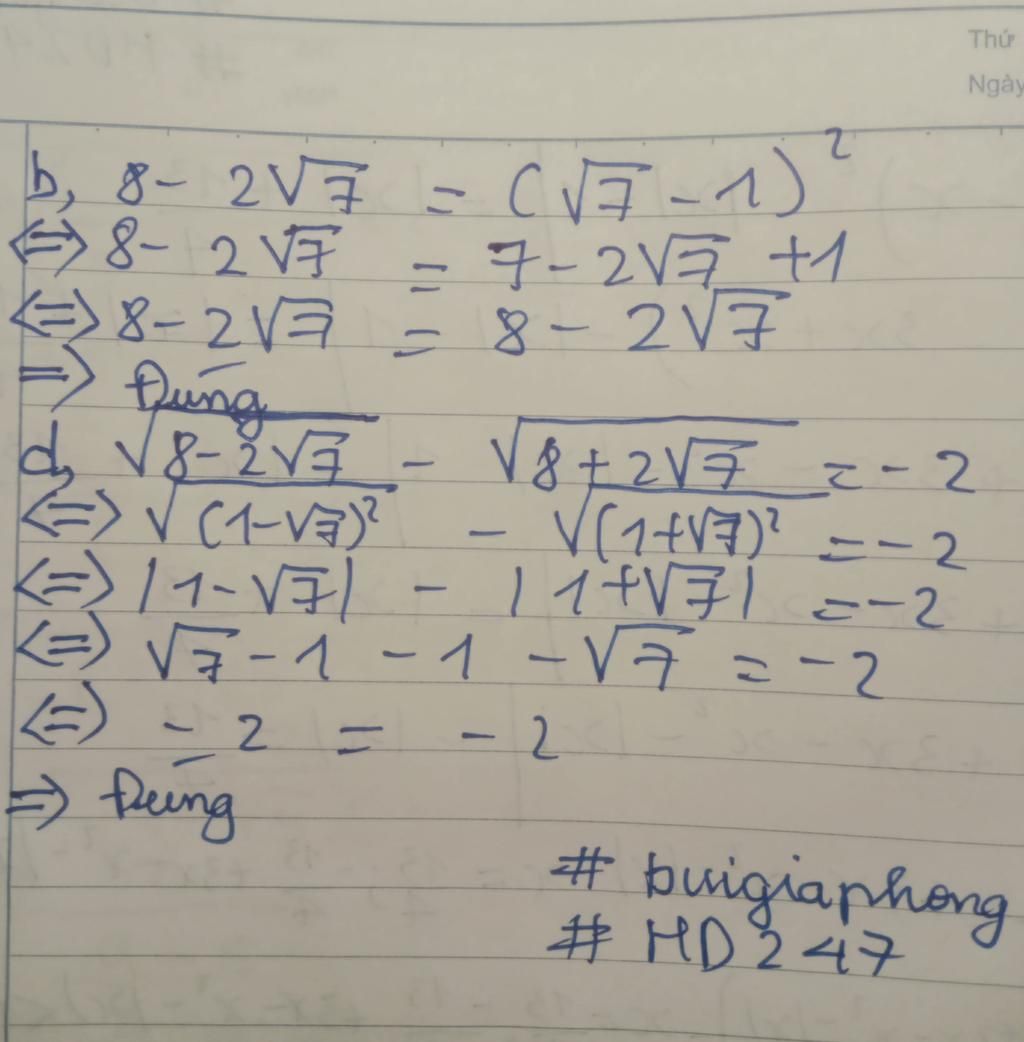 Thứ
Ngày
b, 8 - 2√7 = (√7 - 1)²
<=> 8 - 2√7 = 7 - 2√7 + 1
<=> 8 - 2√7 = 8 - 2√7
=> Đúng
d, √(8 - 2√7) - √(8 + 2√7) = - 2
<=> √((1-√7)²) - √((1+√7)²) = - 2
<=> |1 - √7| - |1 + √7| = - 2
<=> √7 - 1 - 1 - √7 = - 2
<=> - 2 = - 2
=> Đúng
# buigiaphong
# HD247